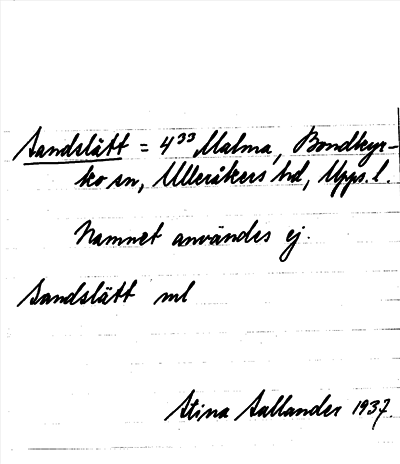 Sandslätt = 4³³ Malma, Bondkyr-
ko sn, Ulleråkers hd, Upps. l.
Namnet användes ej.
Sandslätt ml
Stina Sallander 1937